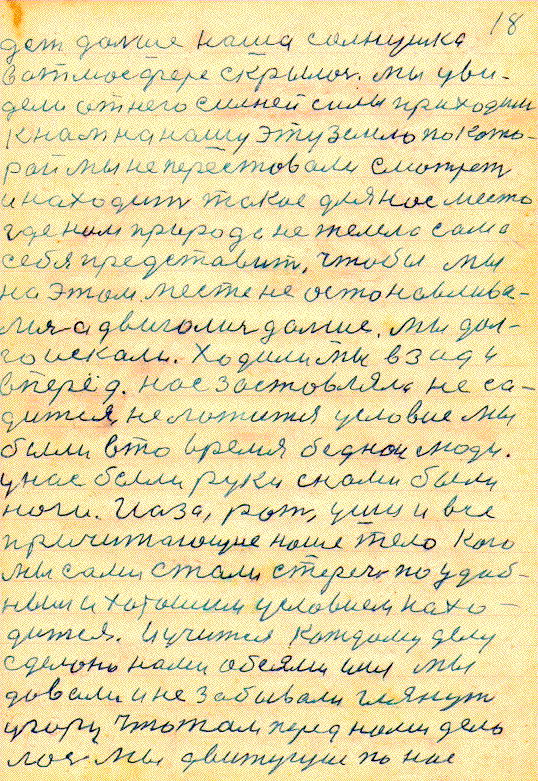 18
дет дальше наша солнушка
в атмосфере скрылос. мы уви-
дели от него силней силы приходим
к нам на нашу эту землю по кото-
рой мы не перестовали смотрет
и находит такое для нас место
где нам природа не желела сама
себя представит, чтобы мы
на этом месте не остонавлива-
лися а двиголися дальше. мы дол-
го искали. Ходили мы в зад и
вперёд. нас заставляли не са-
дится, не ложится условие мы
были в то время бедном люди.
у нас были руки с нами были
ноги. Глаза, рот, уши и все
причитающие наше тело кого
мы сами стали стереч по удоб-
ным и хорошим условием нахо-
дится. И учится каждому делу
сделоно нами обсеяли или мы
довали и не забывали глянут
угору что там перед нами дела
лос мы движущие по нас